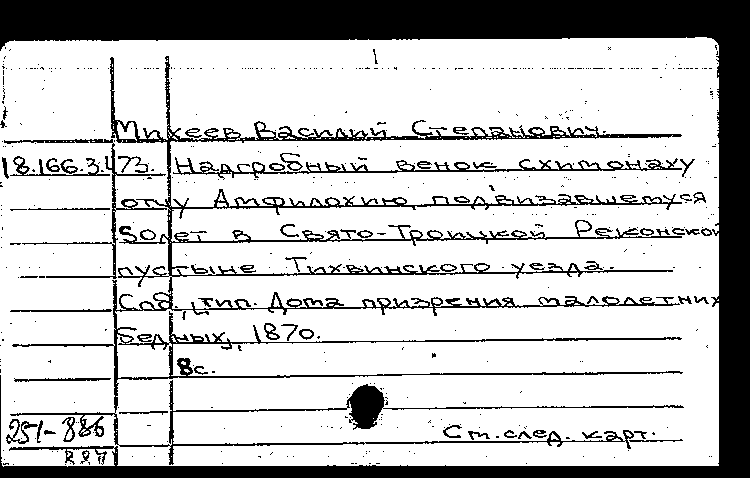 Михеев, Василий Степанович.
18.166.3.473. Надгробный венок схимонаху
отцу Амфилохию, подвизавшемуся
50 лет в Свято-Троицкой Реконской
пустыне Тихвинского уезда.
Спб., тип. Дома призрения малолетних
бедных, 1870.
8с.
251-886
887
См. след. карт.